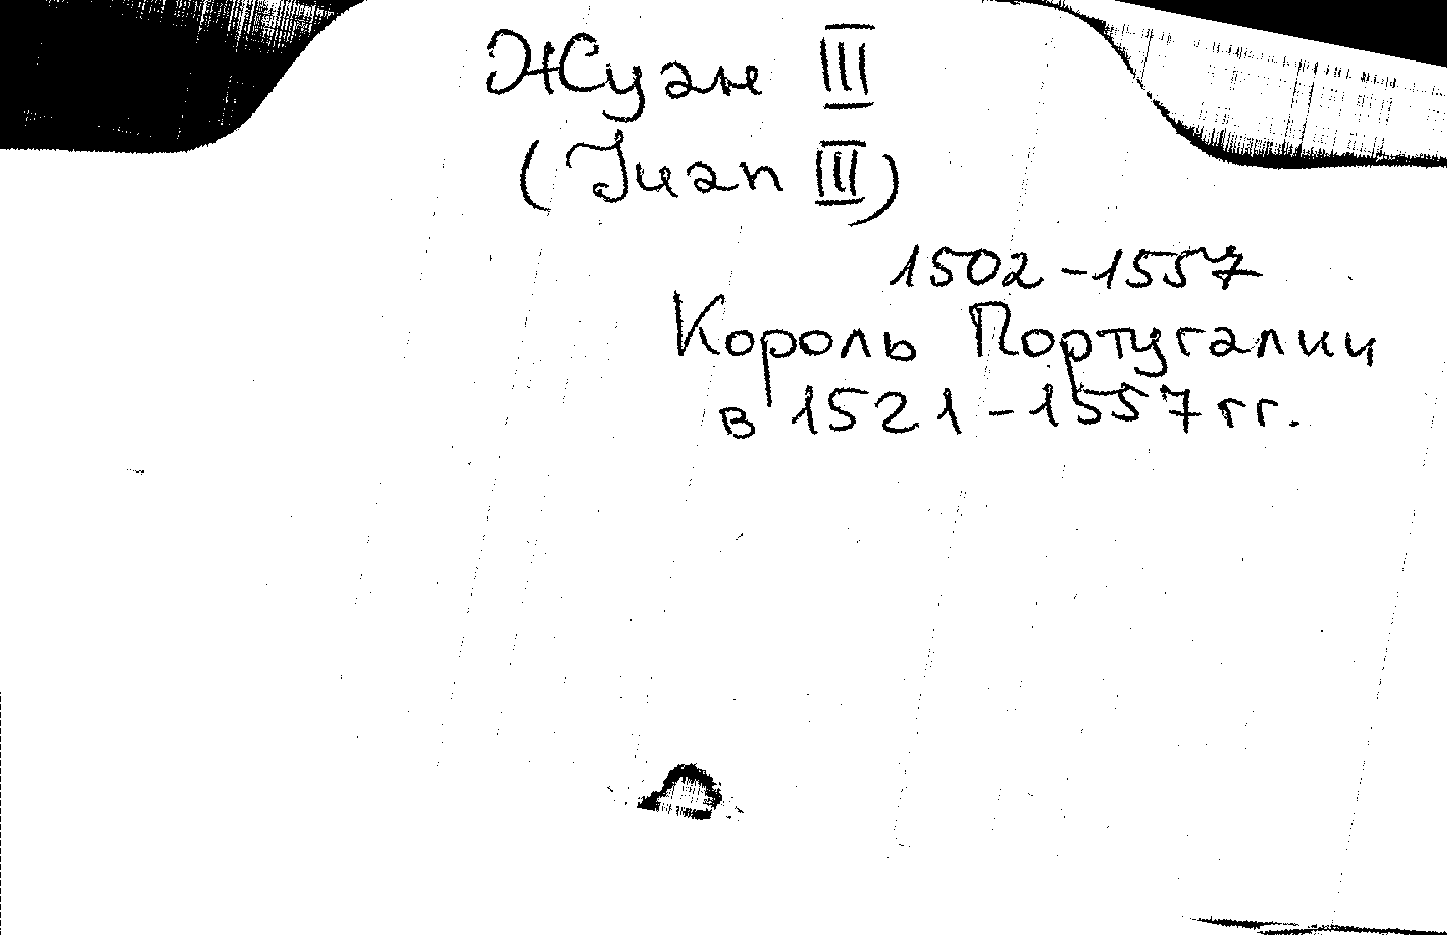 Жуан III
(Juan III)
1502-1557
Король Португалии
в 1521-1557 гг.